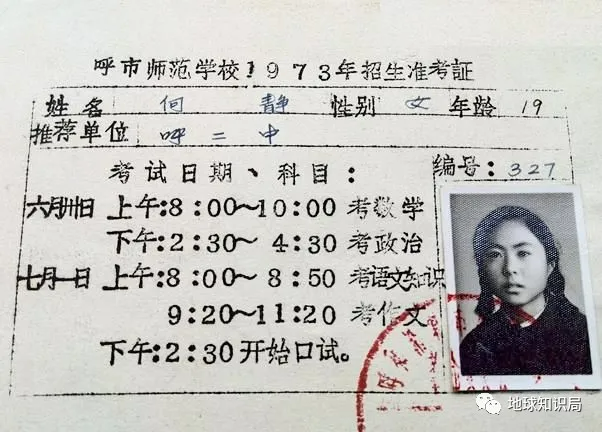 呼市师范学校1973年招生准考証
姓名 何静 性别 女 年龄 19
推荐单位 呼二中
考试日期、科目： 编号：327
六月卅日 上午:8:00~10:00 考数学
下午:2:30~4:30 考政治
七月一日 上午:8:00~8:50 考语文知识
9:20~11:20 考作文
下午:2:30开始口试。
地球知识局